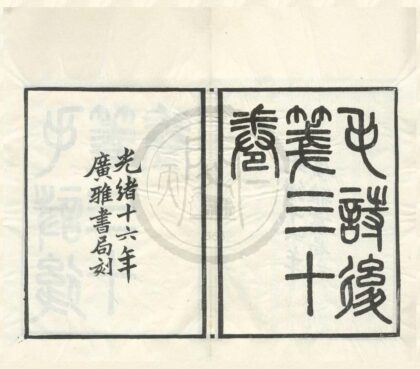 毛詩後
箋三十
卷
光緒十六年
廣雅書局刻